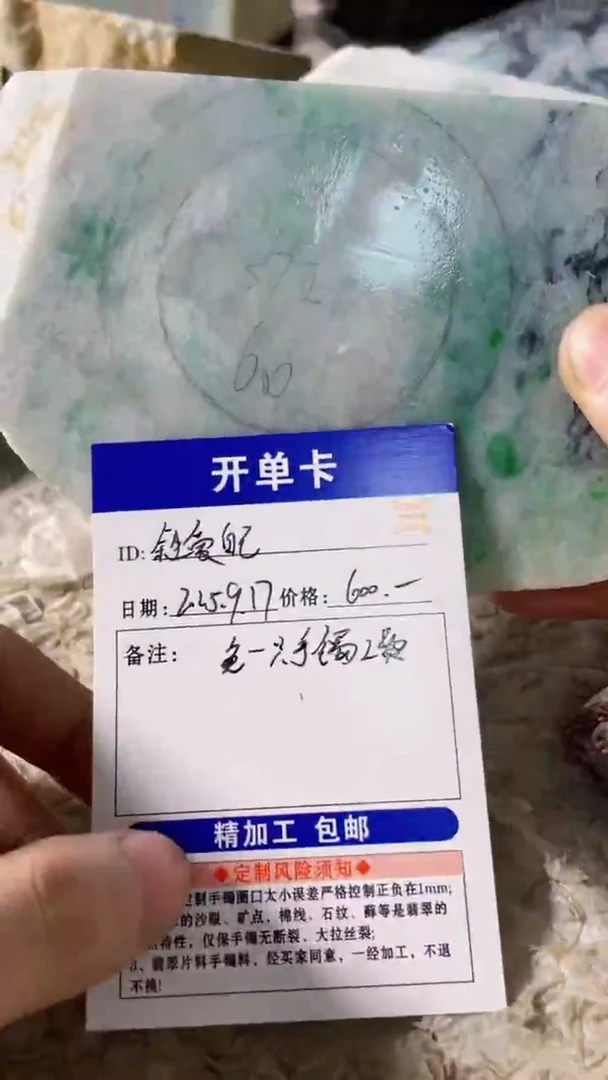 60
开单卡
ID:
日期: 2025.9.17 价格: 600.一
备注: 免一只手镯工费
精加工 包邮
◆定制风险须知◆
定制手镯圈口大小误差严格控制正负在1mm;
的沙眼、矿点、棉线、石纹、藓等是翡翠的
特性，仅保手镯无断裂、大拉丝裂;
、翡翠片料手镯料、经买家同意，一经加工，不退
不换!